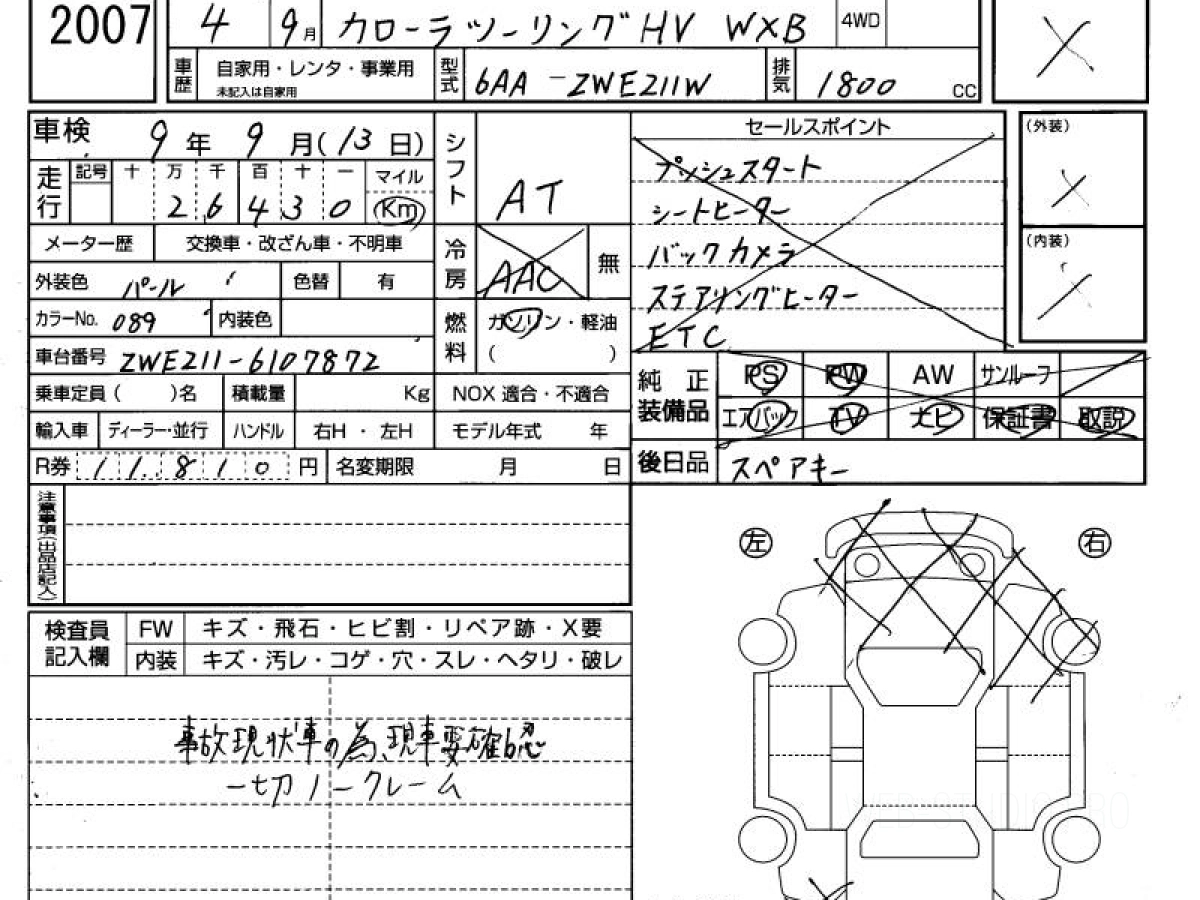 2007 4 9月 カローラツーリングHV WXB 4WD
車歴 自家用・レンタ・事業用 型式 6AA-ZWE211W 排気 1800 CC
未記入は自家用
車検 9年9月(13日) シフト AT セールスポイント (外装)
走行 記号 十 万 千 百 十 一 マイル
2 6 4 3 0 Km
プッシュスタート
シートヒーター
バックカメラ
ステアリングヒーター
ETC
(内装)
メーター歴 交換車・改ざん車・不明車 冷房 AAC 無
外装色 パール 色替 有
カラーNo. 089 内装色 燃料 ガソリン・軽油
( )
車台番号 ZWE211-6107872
乗車定員( )名 積載量 Kg NOX 適合・不適合 純正装備品 PS PW AW サンルーフ
エアバック TV ナビ 保証書 取説
輸入車 ディーラー・並行 ハンドル 右H・左H モデル年式 年
R券 11.810 円 名変期限 月 日 後日品 スペアキー
注意事項(出品店記入)
左 右
検査員記入欄 FW キズ・飛石・ヒビ割・リペア跡・X要
内装 キズ・汚レ・コゲ・穴・スレ・ヘタリ・破レ
事故現状車の為、現車要確認
一切ノークレーム